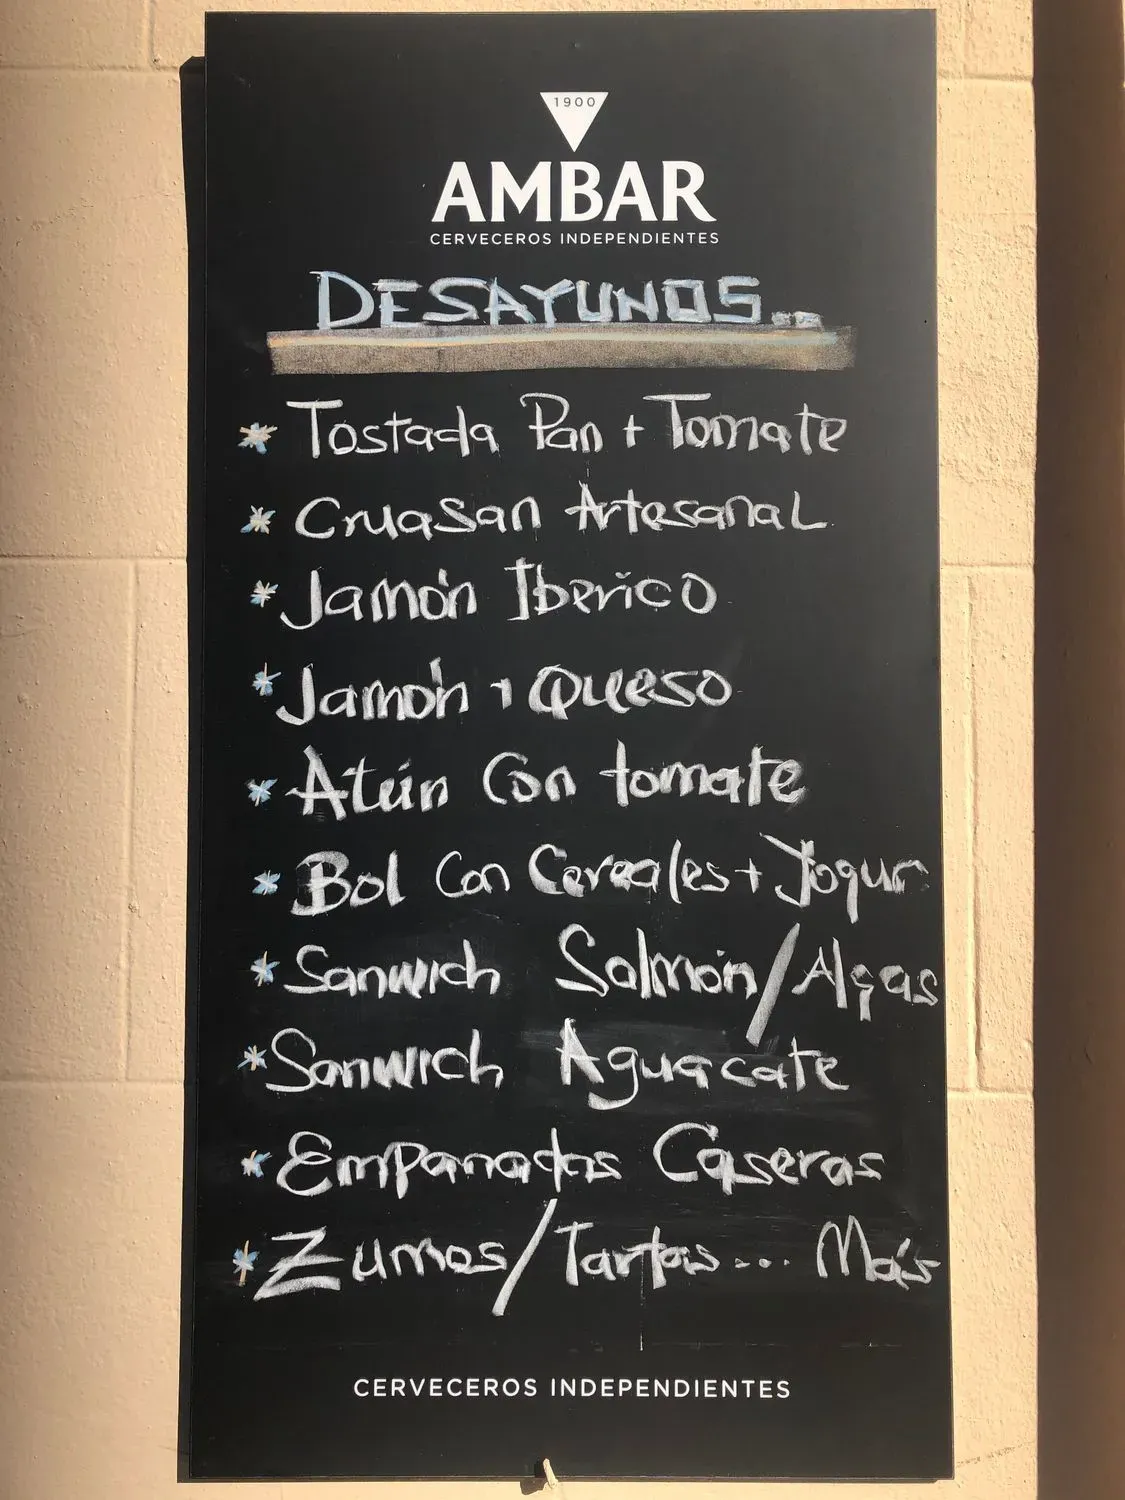 1900
AMBAR
CERVECEROS INDEPENDIENTES
DESAYUNOS...
* Tostada Pan + Tomate
* Cruasan Artesanal
* Jamón Iberico
* Jamón + Queso
* Atún Con tomate
* Bol Con Cereales + Yogur
* Sanwich Salmón/Algas
* Sanwich Aguacate
* Empanadas Caseras
* Zumos/Tartas... Más
CERVECEROS INDEPENDIENTES